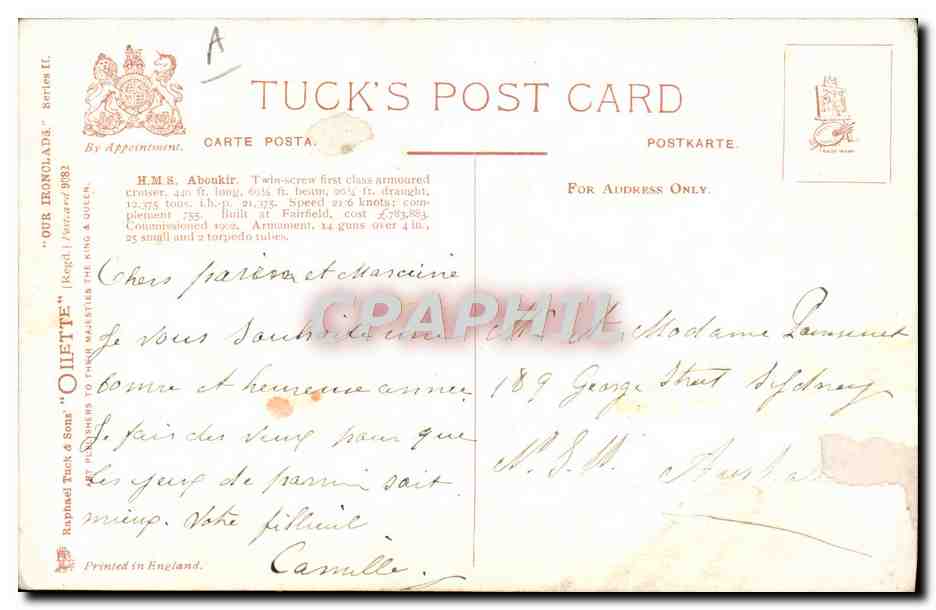 A
TUCK'S POST CARD
By Appointment.
CARTE POSTA
POSTKARTE.
FOR ADDRESS ONLY.
TRADE MARK
"OUR IRONCLADS." Series II.
Raphael Tuck & Sons' "OILETTE" [Regd.] Postcard 9082
ART PUBLISHERS TO THEIR MAJESTIES THE KING & QUEEN.
Printed in England.
H.M.S. Aboukir. Twin-screw first class armoured
cruiser, 440 ft. long, 69½ ft. beam, 26¼ ft. draught,
12,375 tons, i.h.-p. 21,375. Speed 21·6 knots; com-
plement 755. Built at Fairfield, cost £783,883.
Commissioned 1902. Armament, 14 guns over 4 in.,
25 small and 2 torpedo tubes.
Chers parrin et Marraine
Je vous souhaite une
bonne et heureuse année
Je fais des veux pour que
les yeux de parrin soit
mieux. Votre filleul
Camille.
CPAPHIL
Mr & Madame
189 George Street Sydney
N.S.W. Austra